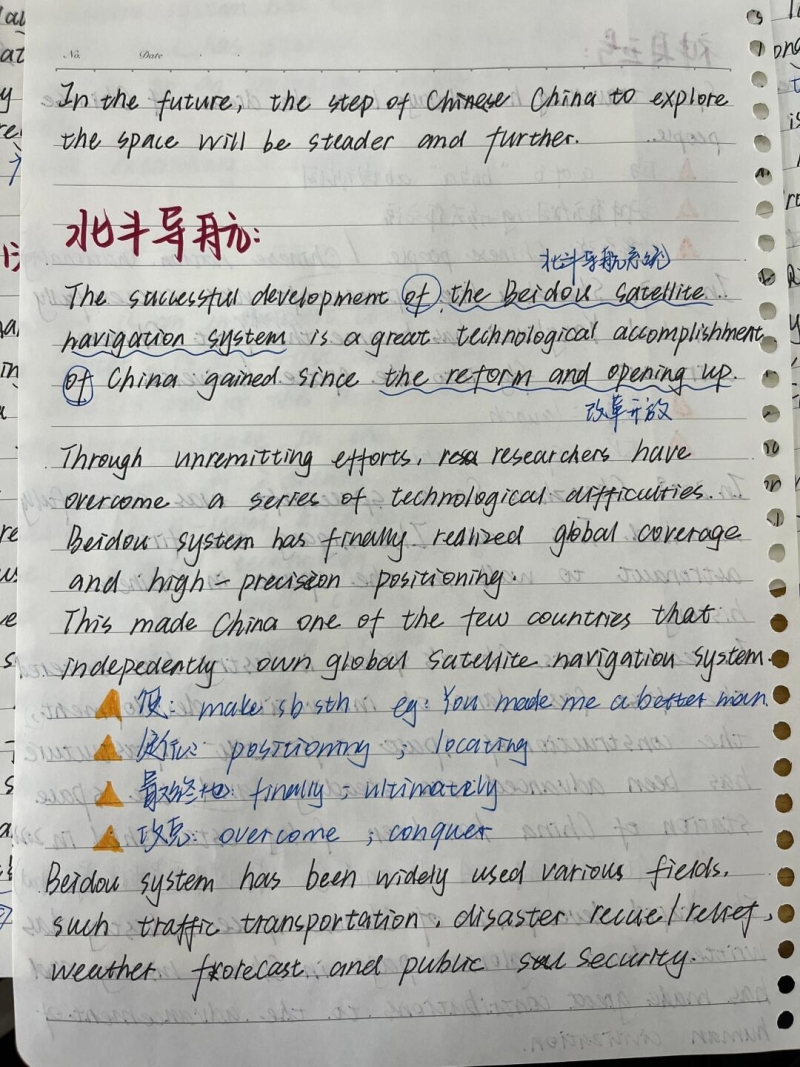 No. Date
In the future, the step of Chinese China to explore
the space will be steader and further.
北斗导航:
北斗导航系统
The successful development of the Beidou satellite
navigation system is a great technological accomplishment
of China gained since the reform and opening up.
改革开放
Through unremitting efforts, resa researchers have
overcome a series of technological difficulties.
Beidou system has finally realized global coverage
and high-precision positioning.
This made China one of the few countries that
indepedently own global satellite navigation system.
使: make sb sth eg: You made me a better man.
定位: positioning ; locating
最终地: finally ; ultimately
攻克: overcome ; conquer
Beidou system has been widely used various fields,
such traffic transportation, disaster recue/relief,
weather forecast and public security.